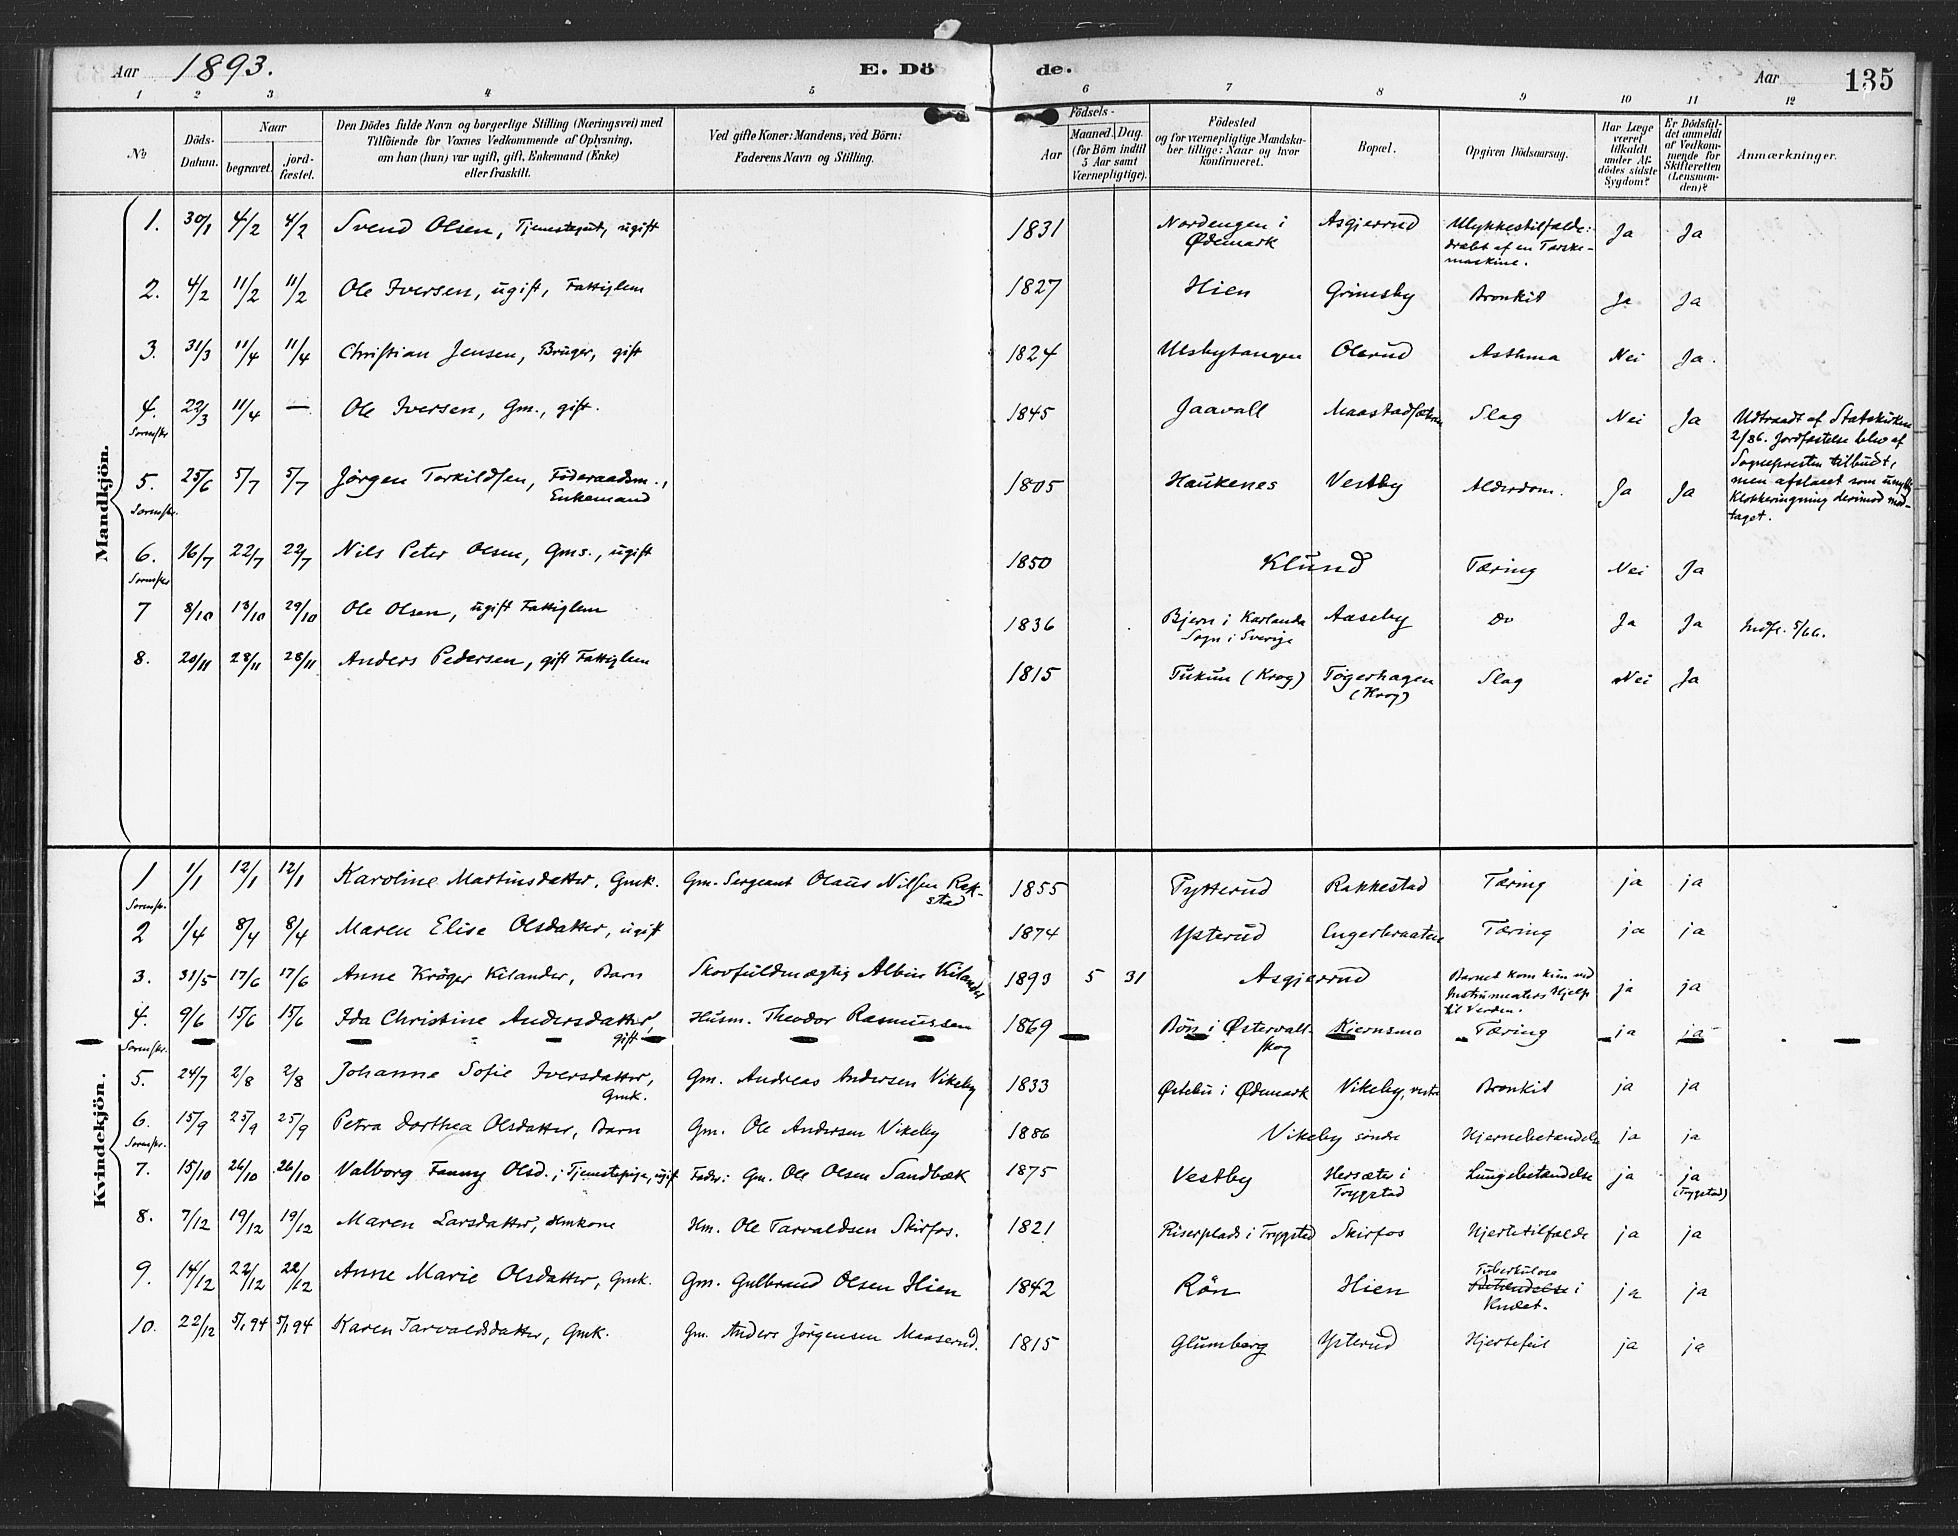 Aar 1893. E. Döde. Aar 135
1 2 3 4 5 6 7 8 9 10 11 12
No
Döds-Datum.
Naar
begravet. jordfæstet.
Den Dödes fulde Navn og borgerlige Stilling (Næringsvei) med
Tilföiende for Voxnes Vedkommende af Oplysning,
om han (hun) var ugift, gift, Enkemand (Enke)
eller fraskilt.
Ved gifte Koner: Mandens, ved Börn:
Faderens Navn og Stilling.
Födsels-
Aar
Maaned. Dag.
(for Börn indtil
5 Aar samt
Værnepligtige).
Födested
og for værnepligtige Mandskaber tillige: Naar og hvor
konfirmeret.
Bopæl.
Opgiven Dödsaarsag.
Har Læge
været
tilkaldt
under Afdödes sidste
Sygdom?
Er Dödsfaldet anmeldt
af Vedkommende for
Skifteretten
(Lensmanden)?
Anmærkninger.
Mandkjön.
1. 30/1 4/2 4/2 Svend Olsen, Tjenestegut, ugift 1831 Nordengen i Ødemark Asgjerrud Ulykkestilfælde: dræbt af en Tærskemaskine. Ja Ja
2. 4/2 11/2 11/2 Ole Iversen, ugift, Fattiglem 1827 Hien Grimsby Bronkit Ja Ja
3. 31/3 11/4 11/4 Christian Jensen, Bruger, gift 1824 Ulsbytangen Olerud Asthma Nei Ja.
4. 22/3 11/4 — Ole Iversen, Gm., gift. 1845 Jaavall Slag Nei Ja Udtraadt af Statskirken
2/86. Jordfæstelse blev af
Sognepresten tilbudt,
men afslaaet som
Klokkeringning derimod modtaget.
5. 25/6 5/7 5/7 Jørgen Torkildsen, Föderaadsm., Enkemand 1805 Haukenes Vestby Alderdom. Ja Ja
6. 16/7 22/7 22/7 Nils Peter Olsen, Gms., ugift 1850 Klund Tæring Nei Ja
7 8/10 13/10 29/10 Ole Olsen, ugift Fattiglem 1836 Bjørn i Karlanda Sogn i Sverige Aaseby Do Ja Ja Indfl. 5/66.
8. 20/11 28/11 28/11 Anders Pedersen, gift Fattiglem 1815 Tukun (Krog) Togerhagen (Krog) Slag Nei Ja
Kvindekjön.
1 1/1 12/1 12/1 Karoline Martinsdatter, Gmk. Gm. Sergeant Olaus Nilsen Rakstad 1855 Pytterud Rakkestad Tæring ja ja
2 1/4 8/4 8/4 Maren Elise Olsdatter, ugift 1874 Ysterud Engerbraaten Tæring ja ja
3. 31/5 17/6 17/6 Anne Krøger Kilander, Barn Skovfuldmægtig Albin Kilander 1893 5 31 Asgjerrud Barnet kom kun ved Instrumenters Hjelp til Verden. ja ja
4. 9/6 15/6 15/6 Ida Christine Andersdatter, gift Husm. Theodor Rasmussen 1869 Bön i Østervallskog Kjernsmo Tæring ja ja
5. 24/7 2/8 2/8 Johanne Sofie Iversdatter, Gmk. Gm. Andreas Andersen Vikeby 1833 Østebu i Ødemark Vikeby, vestre Bronkit ja ja
6. 15/9 25/9 25/9 Petra Dorthea Olsdatter, Barn Gm. Ole Andersen Vikeby 1886 Vikeby söndre Hjernebetændelse ja ja
7. 15/10 26/10 26/10 Valborg Fanny Olsd., Tjenestepige, ugift Fader: Gm. Ole Olsen Sandbæk 1875 Vestby Hersæter i Trygstad Lungebetændelse ja ja (Trygstad)
8. 7/12 19/12 19/12 Maren Larsdatter, Hmkone Hm. Ole Tarvaldsen Skirfos. 1821 Riserplads i Trygstad Skirfos Hjertetilfælde ja ja
9. 14/12 22/12 22/12 Anne Marie Olsdatter, Gmk. Gm. Gulbrand Olsen Hien 1842 Rön Hien Tuberkulose Betændelse i Knæet. ja ja
10. 22/12 5/1 94 5/1 94 Karen Tarvaldsdatter, Gmk. Gm. Anders Jørgensen Maaserud. 1815 Glumberg Ysterud Hjertefeil ja ja